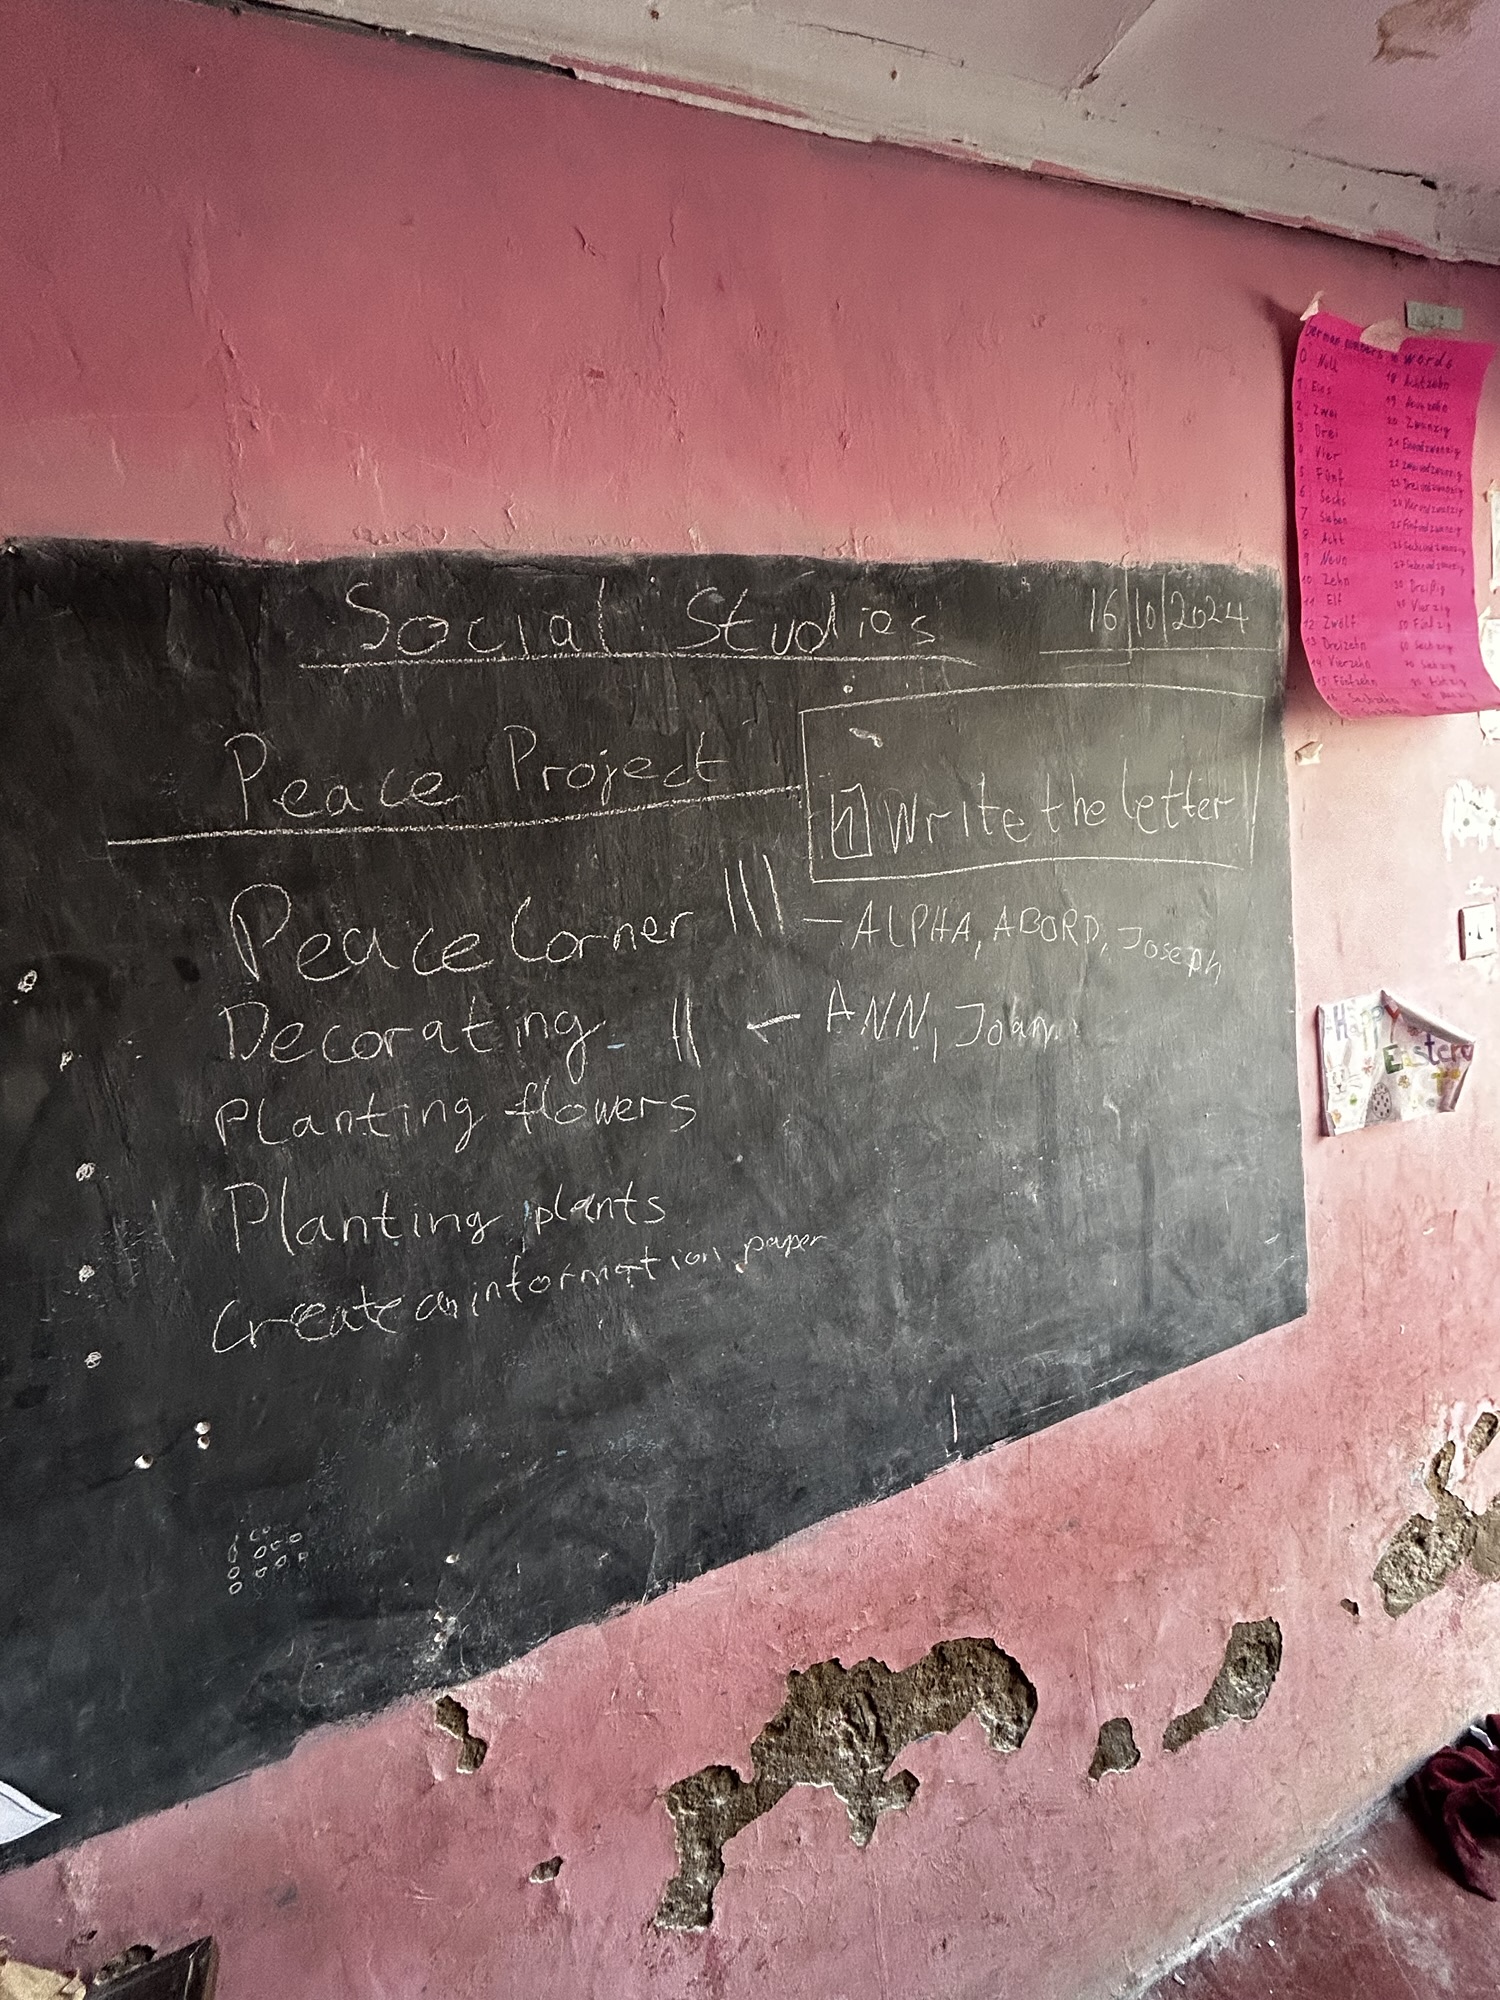 Social Studies
16/10/2024
Peace Project
1 Write the letter
Peace Corner ||| – ALPHA, ABORD, Joseph,
Decorating || ← ANN, Joan
Planting flowers
Planting plants
Create an information paper
German numbers in words
0 Null
1 Eins
2 Zwei
3 Drei
Vier
5 Fünf
6 Sechs
7 Sieben
8 Acht
9 Neun
10 Zehn
11 Elf
12 Zwölf
13 Dreizehn
14 Vierzehn
15 Fünfzehn
18 Achtzehn
19 Neunzehn
20 Zwanzig
21 Einundzwanzig
22 Zweiundzwanzig
23 Dreiundzwanzig
24 Vierundzwanzig
25 Fünfundzwanzig
26 Sechsundzwanzig
27 Siebenundzwanzig
30 Dreißig
40 Vierzig
Happy
Easter